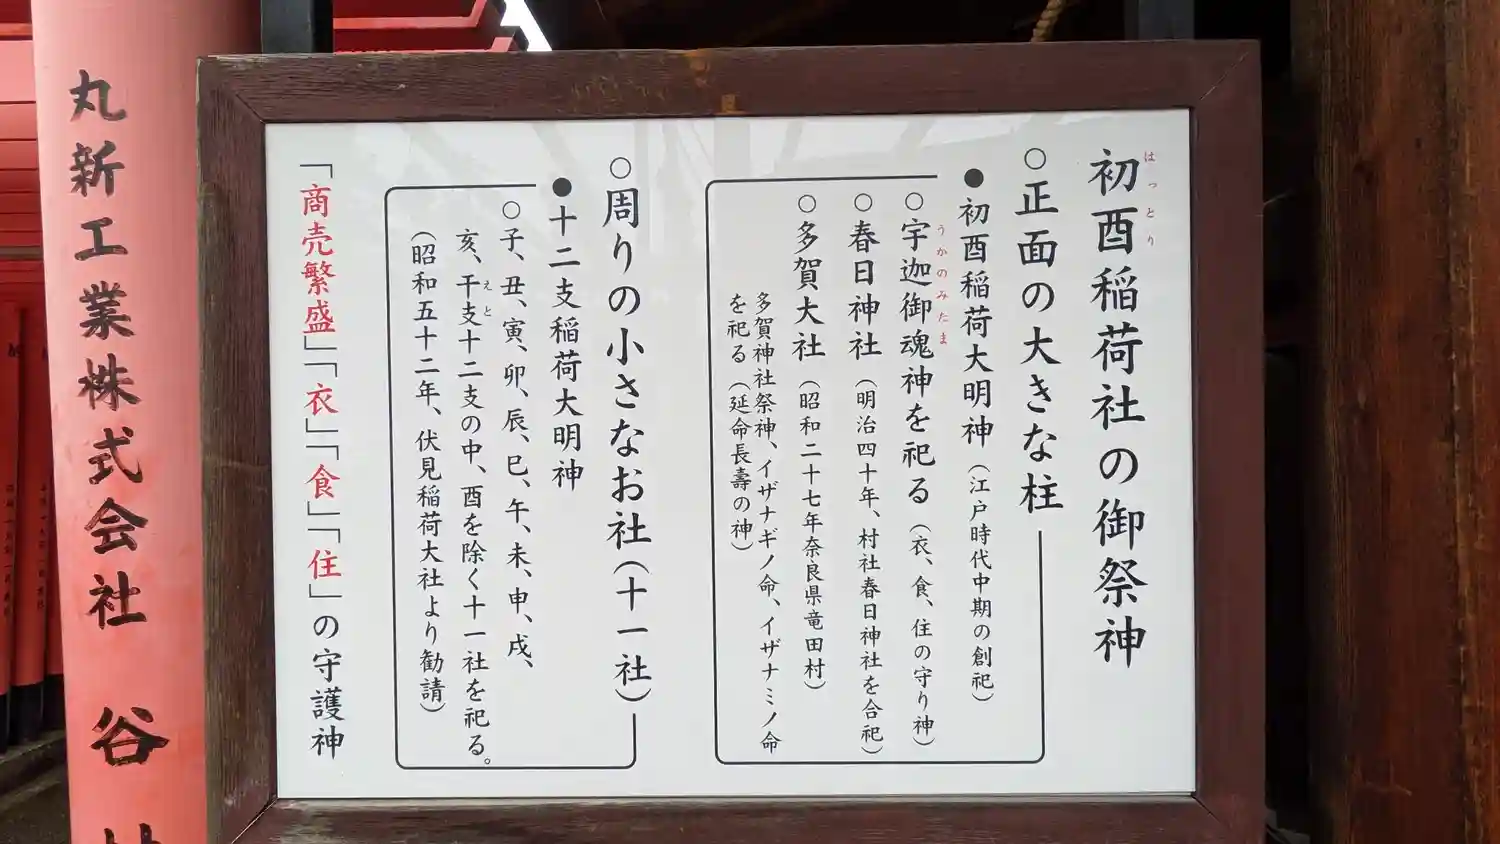 初酉稲荷社の御祭神
はっとり
○正面の大きな柱
●初酉稲荷大明神（江戸時代中期の創祀）
○宇迦御魂神を祀る（衣、食、住の守り神）
うかのみたま
○春日神社（明治四十年、村社春日神社を合祀）
○多賀大社（昭和二十七年奈良県竜田村）
多賀神社祭神、イザナギノ命、イザナミノ命
を祀る（延命長壽の神）
○周りの小さなお社（十一社）
●十二支稲荷大明神
○子、丑、寅、卯、辰、巳、午、未、申、戌、
亥、干支十二支の中、酉を除く十一社を祀る。
えと
（昭和五十二年、伏見稲荷大社より勧請）
「商売繁盛」「衣」「食」「住」の守護神
丸新工業株式会社 谷